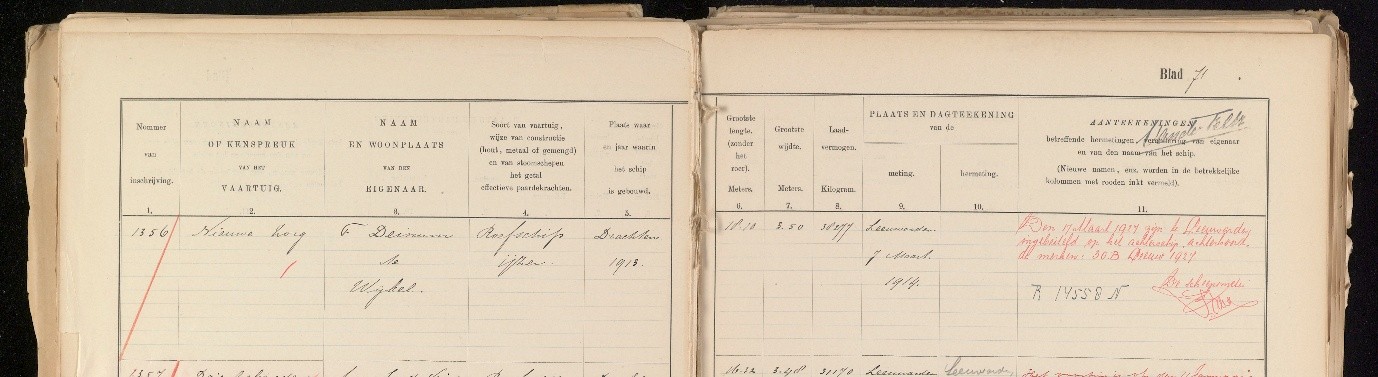 Blad 71.
Nommer
van
inschrijving.
NAAM
OF KENSPREUK
VAN HET
VAARTUIG.
NAAM
EN WOONPLAATS
VAN DEN
EIGENAAR.
Soort van vaartuig,
wijze van constructie
(hout, metaal of gemengd)
en van stoomschepen
het getal
effectieve paardekrachten.
Plaats waar
en jaar waarin
het schip
is gebouwd.
Grootste
lengte.
(zonder
het
roer).
Meters.
Grootste
wijdte.
Meters.
Laad-
vermogen.
Kilogram.
PLAATS EN DAGTEEKENING
van de
meting.
hermeting.
AANTEEKENINGEN
betreffende hermetingen, verandering van eigenaar
en van den naam van het schip.
(Nieuwe namen, enz. worden in de betrekkelijke
kolommen met rooden inkt vermeld).
1. 2. 3. 4. 5. 6. 7. 8. 9. 10. 11.
1356 Nieuwe Zorg F Deinum Roefschip Drachten 18.10 3.50 38277 Leeuwarden
te ijzer. 1913. 7 Maart
Wijkel. 1914.
Den 17 Maart 1927 zijn te Leeuwarden
ingebeiteld op het achterschip, achterkant
de merken: 30 B Leeuw 1927.
De scheepsmeter
R 14558 N
1357 16.32 3.48 31170 Leeuwarden Leeuwarden